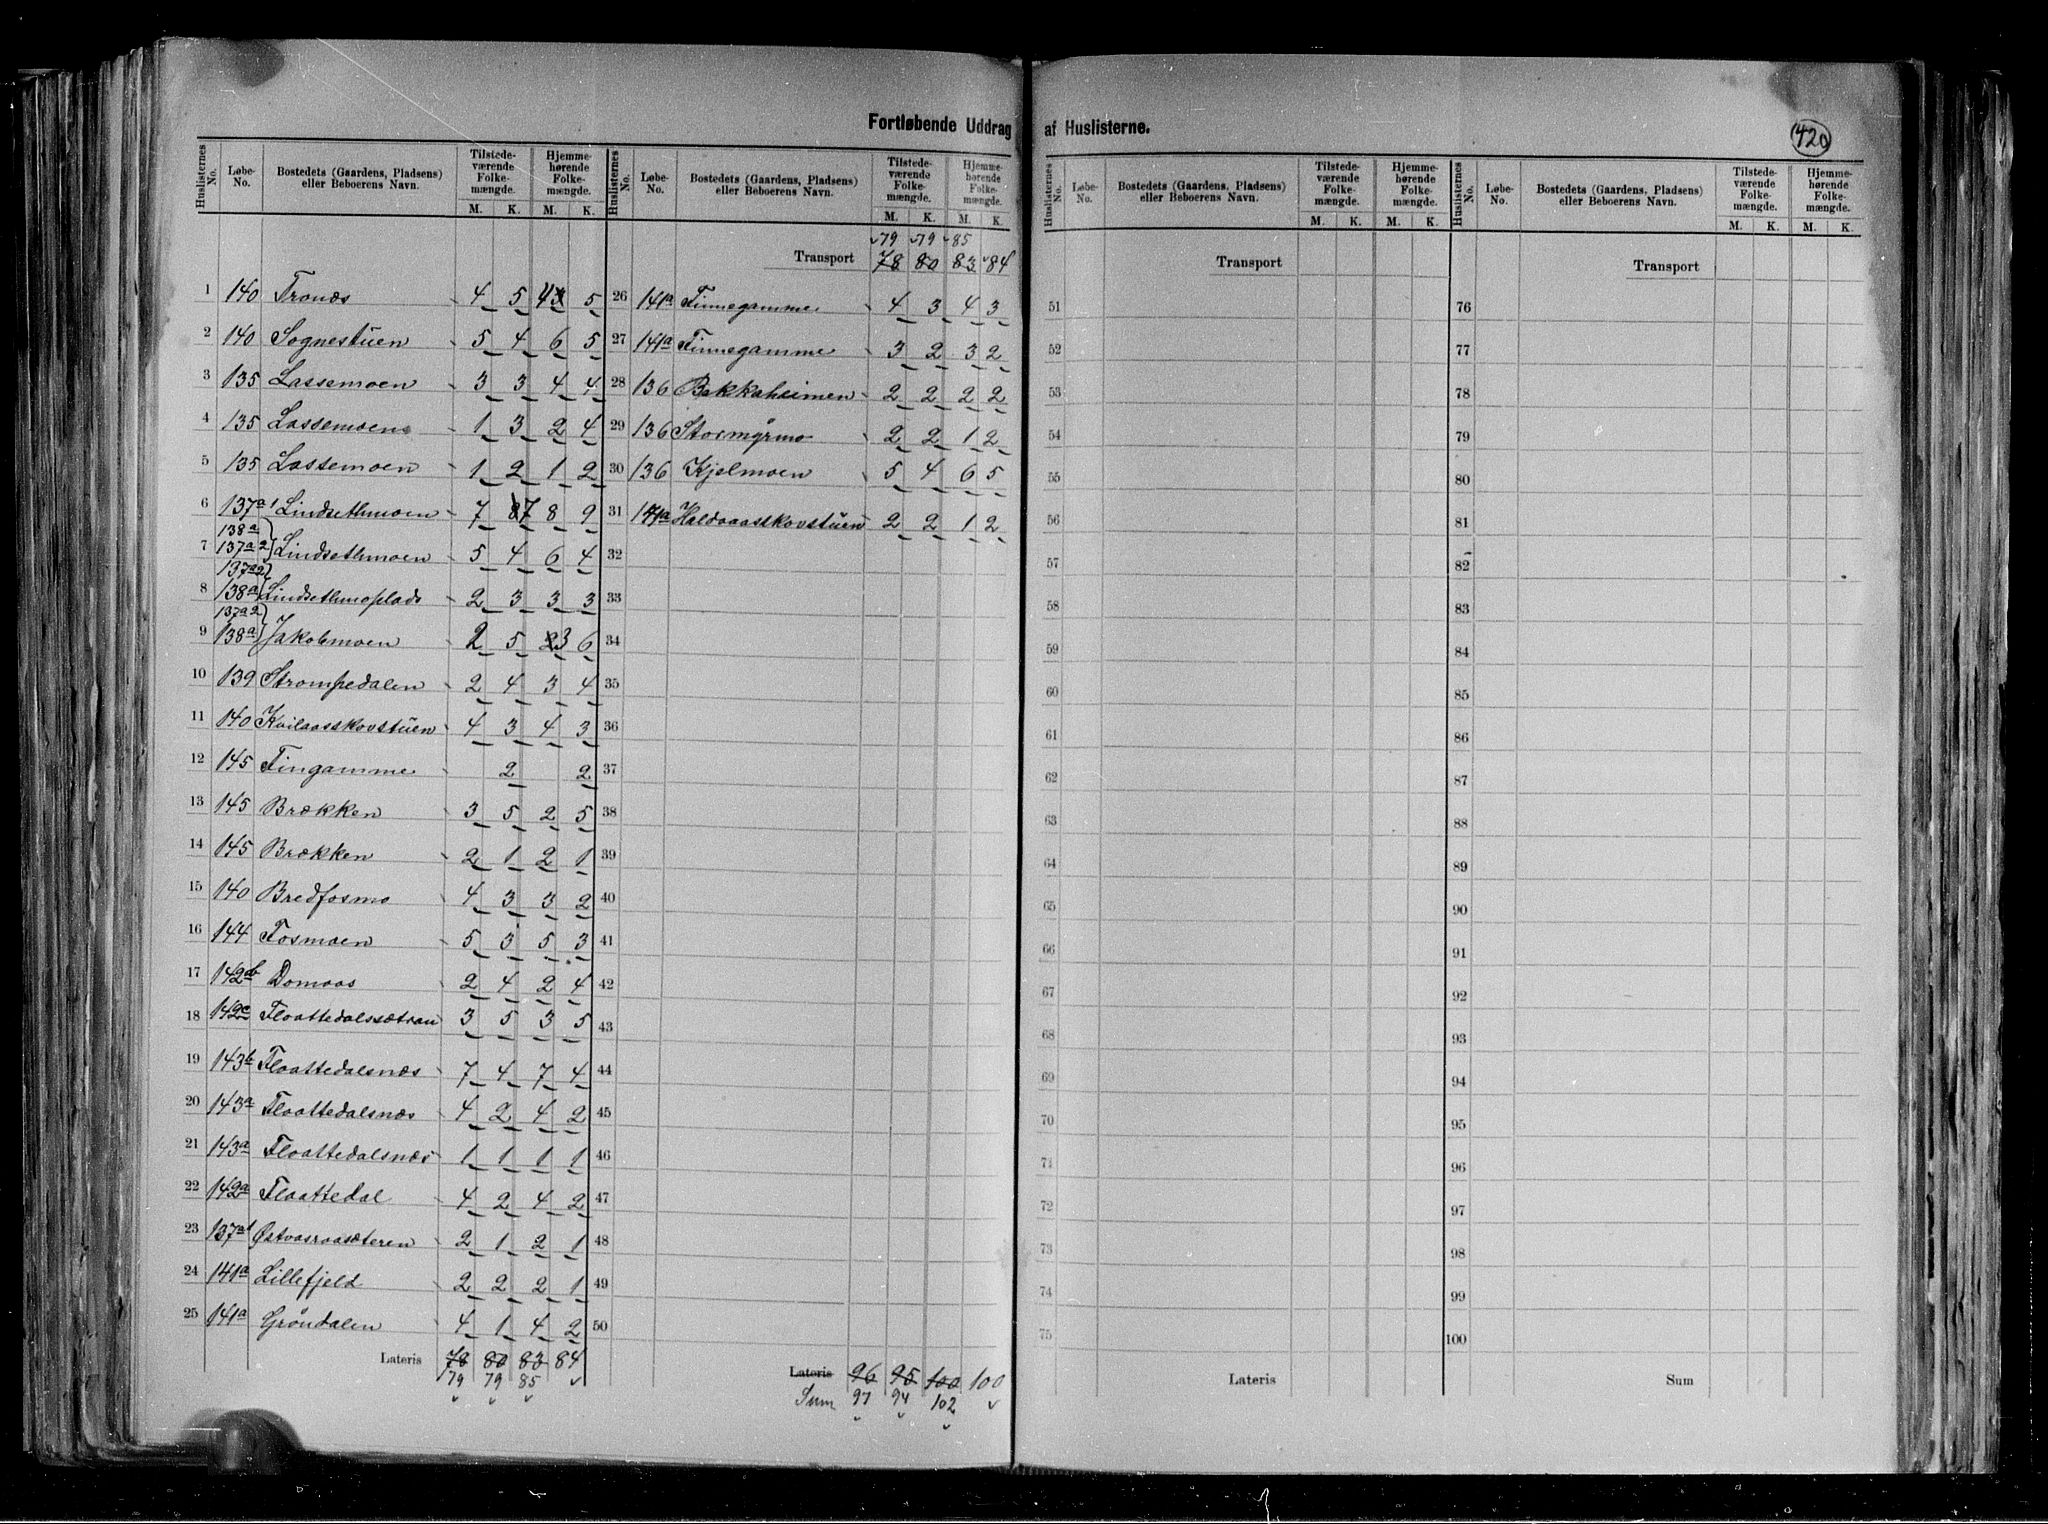 Fortløbende Uddrag af Huslisterne.
420
Huslisternes No. | Løbe-No. | Bostedets (Gaardens, Pladsens) eller Beboerens Navn. | Tilstedeværende Folkemængde. M. K. | Hjemmehørende Folkemængde. M. K.
1 140 Tronæs 4 5 4 5
2 140 Sognestuen 5 4 6 5
3 135 Lassemoen 3 3 4 4
4 135 Lassemoen 1 3 2 4
5 135 Lassemoen 1 2 1 2
6 137a1 Lindsethmoen 7 8 7 8 9
7 138a 137a2 Lindsethmoen 5 4 6 4
8 137a2 138a Lindsethmoplads 2 3 3 3
9 137a2 138a Jakobmoen 2 5 2 3 6
10 139 Strompedalen 2 4 3 4
11 140 Kvilaasskovstuen 4 3 4 3
12 145 Fingamme 2 2
13 145 Brækken 3 5 2 5
14 145 Brækken 2 1 2 1
15 140 Bredfosmo 4 3 3 2
16 144 Fosmoen 5 3 5 3
17 142b Domaas 2 4 2 4
18 142a Flaattedalssætran 3 5 3 5
19 143b Flaattedalsnæs 7 4 7 4
20 143a Flaattedalsnæs 4 2 4 2
21 143a Flaattedalsnæs 1 1 1 1
22 142a Flaattedal 4 2 4 2
23 137a1 Østvasraasæteren 2 1 2 1
24 141a Lillefjeld 2 2 2 1
25 141a Gröndalen 4 1 4 2
Lateris 78 80 83 84
79 79 85
Huslisternes No. | Løbe-No. | Bostedets (Gaardens, Pladsens) eller Beboerens Navn. | Tilstedeværende Folkemængde. M. K. | Hjemmehørende Folkemængde. M. K.
79 79 85
Transport 78 80 83 84
26 141a Finnegamme 4 3 4 3
27 141a Finnegamme 3 2 3 2
28 136 Bekkaheimen 2 2 2 2
29 136 Stormyrmo 2 2 1 2
30 136 Kjelmoen 5 4 6 5
31 141a Haldvaasskovstuen 2 2 1 2
32
33
34
35
36
37
38
39
40
41
42
43
44
45
46
47
48
49
50
Lateris 96 95 100 100
Sum 97 94 102
Huslisternes No. | Løbe-No. | Bostedets (Gaardens, Pladsens) eller Beboerens Navn. | Tilstedeværende Folkemængde. M. K. | Hjemmehørende Folkemængde. M. K.
Transport
51
52
53
54
55
56
57
58
59
60
61
62
63
64
65
66
67
68
69
70
71
72
73
74
75
Lateris
Huslisternes No. | Løbe-No. | Bostedets (Gaardens, Pladsens) eller Beboerens Navn. | Tilstedeværende Folkemængde. M. K. | Hjemmehørende Folkemængde. M. K.
Transport
76
77
78
79
80
81
82
83
84
85
86
87
88
89
90
91
92
93
94
95
96
97
98
99
100
Sum